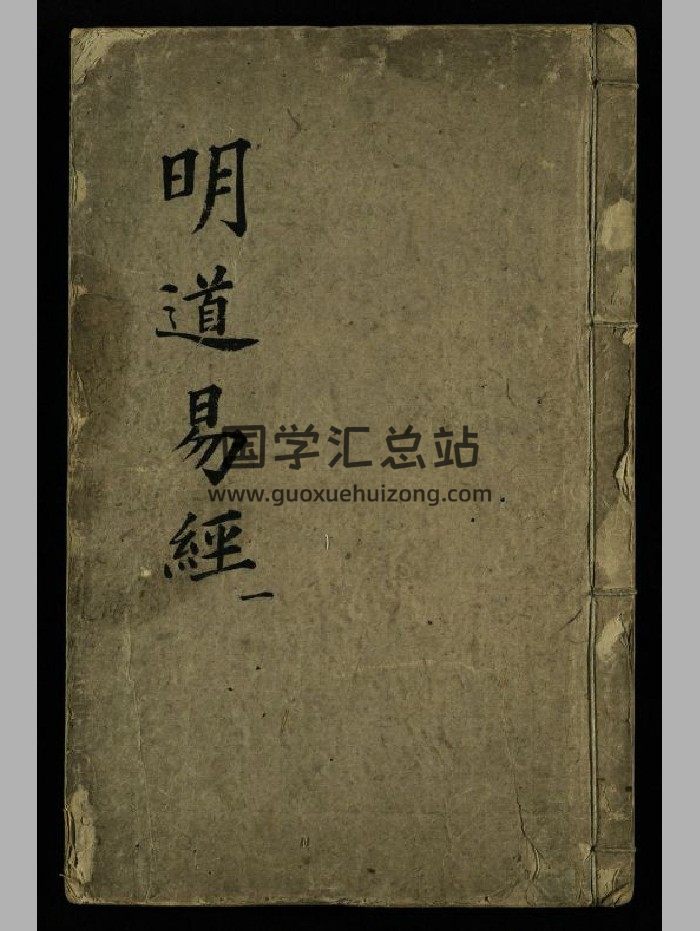 明道易經
一
国学汇总站
www.guoxuehuizong.com